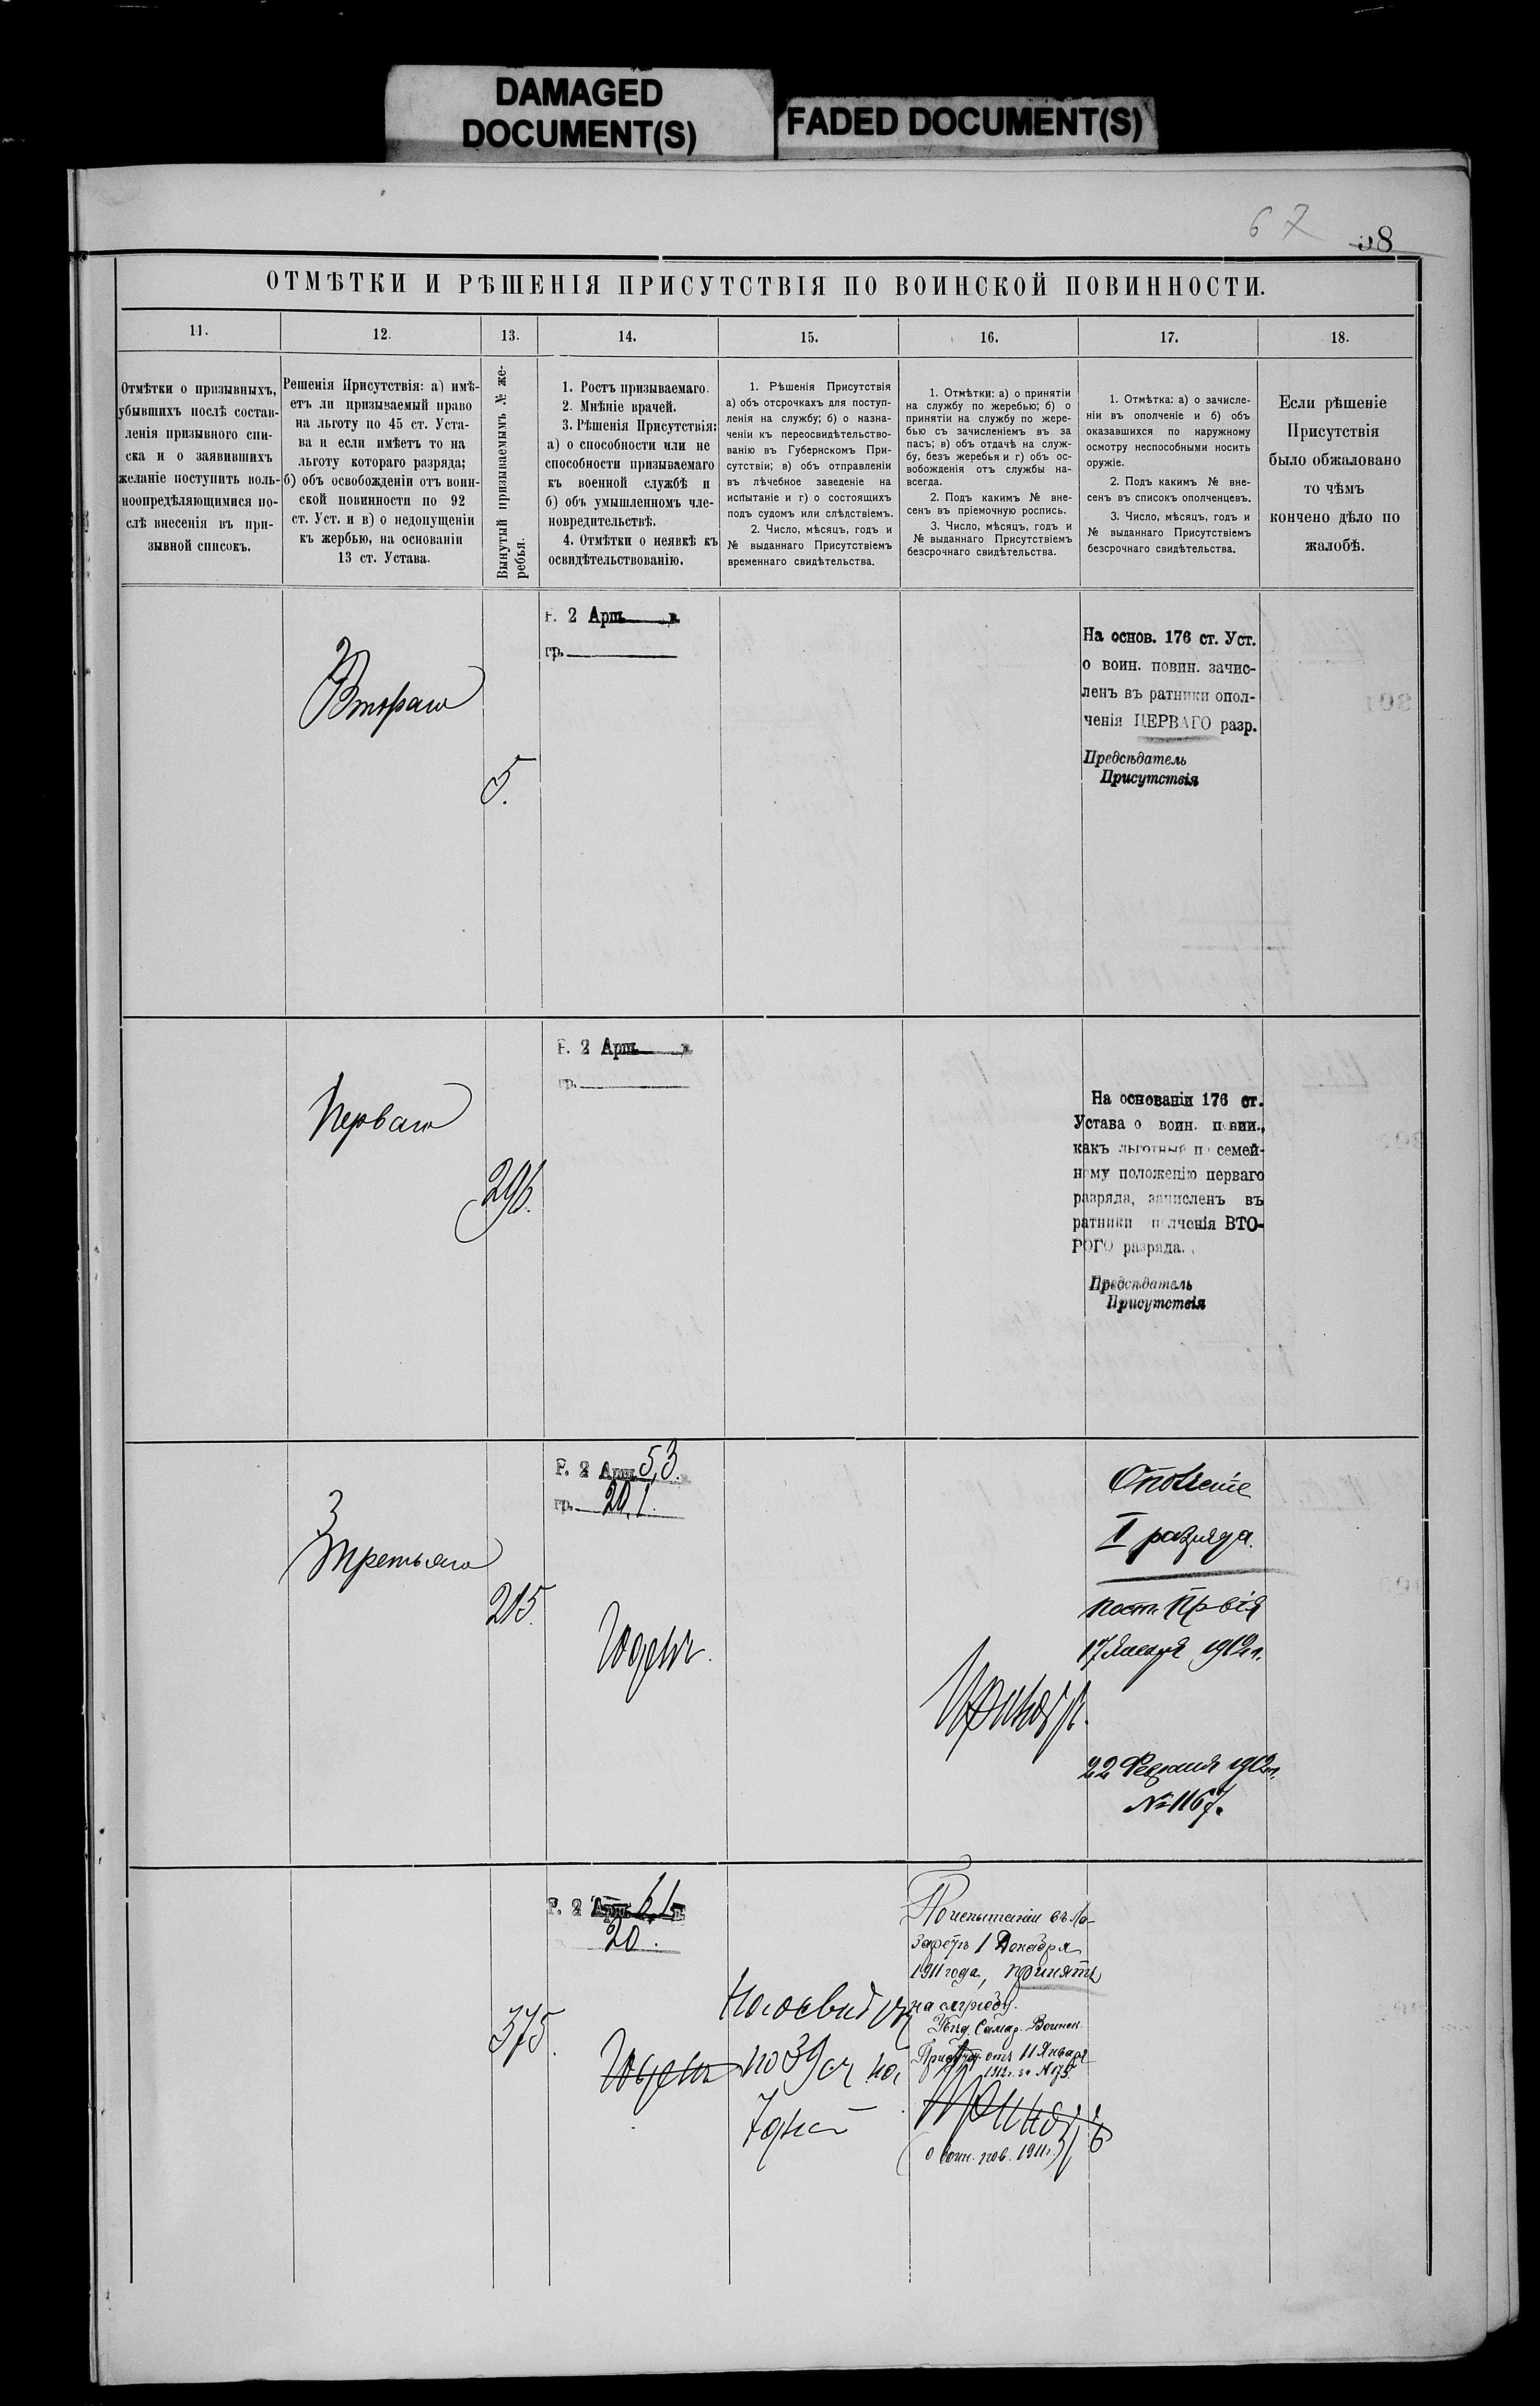 DAMAGED
DOCUMENT(S)
FADED DOCUMENT(S)
67
58
ОТМѢТКИ И РѢШЕНІЯ ПРИСУТСТВІЯ ПО ВОИНСКОЙ ПОВИННОСТИ.
11.
12.
13.
14.
15.
16.
17.
18.
Отмѣтки о призывныхъ,
убывшихъ послѣ состав-
ленія призывного спи-
ска и о заявившихъ
желаніе поступить воль-
ноопредѣляющимися по-
слѣ внесенія въ при-
зывной списокъ.
Решенія Присутствія: а) имѣ-
етъ ли призываемый право
на льготу по 45 ст. Уста-
ва и если имѣетъ то на
льготу котораго разряда;
б) объ освобожденіи отъ воин-
ской повинности по 92
ст. Уст. и в) о недопущеніи
къ жербью, на основаніи
13 ст. Устава.
Вынутый призываемымъ № же-
ребья.
1. Ростъ призываемаго.
2. Мнѣніе врачей.
3. Рѣшенія Присутствія:
а) о способности или не
способности призываемаго
къ военной службѣ и
б) объ умышленномъ чле-
новредительствѣ.
4. Отмѣтки о неявкѣ къ
освидѣтельствованію.
1. Рѣшенія Присутствія
а) объ отсрочкахъ для поступ-
ленія на службу; б) о назна-
ченіи къ переосвидѣтельство-
ванію въ Губернскомъ При-
сутствіи; в) объ отправленіи
въ лѣчебное заведеніе на
испытаніе и г) о состоящихъ
подъ судомъ или слѣдствіемъ.
2. Число, мѣсяцъ, годъ и
№ выданнаго Присутствіемъ
временнаго свидѣтельства.
1. Отмѣтки: а) о принятіи
на службу по жеребью; б) о
принятіи на службу по жере-
бью съ зачисленіемъ въ за
пасъ; в) объ отдачѣ на служ-
бу, безъ жеребья и г) объ ос-
вобожденія отъ службы на-
всегда.
2. Подъ какимъ № вне-
сенъ въ пріемочную роспись.
3. Число, мѣсяцъ, годъ и
№ выданнаго Присутствіемъ
безсрочнаго свидѣтельства.
1. Отмѣтка: а) о зачисле-
ніи въ ополченіе и б) объ
оказавшихся по наружному
осмотру неспособными носить
оружіе.
2. Подъ какимъ № вне-
сенъ въ списокъ ополченцевъ.
3. Число, мѣсяцъ, годъ и
№ выданнаго Присутствіемъ
безсрочнаго свидѣтельства.
Если рѣшеніе
Присутствія
было обжаловано
то чѣмъ
кончено дѣло по
жалобѣ.
2
Втораго
5.
Р. 2 Арш. в.
гр.
На основ. 176 ст. Уст.
о воин. повин. зачис-
ленъ въ ратники опол-
ченія ПЕРВАГО разр.
Предсѣдатель
Присутствія
Перваго
296.
Р. 2 Арш. в.
гр.
На основаніи 176 ст.
Устава о воин. повин.,
какъ льготный по семей-
ному положенію перваго
разряда, зачисленъ въ
ратники полченія ВТО-
РОГО разряда.
Предсѣдатель
Присутствія
3
Третьяго
215.
Р. 2 Арш. 5,3.
гр. 20,1.
Годенъ.
Принятъ.
Ополченіе
I разряда.
Пост. Пр-вія
17 Января 1912 г.
22 Февраля 1912 г.
№ 1167.
375.
Р. 2 Арш. 6,1 в
20.
Годенъ
по 39 ст.
По испытаніи въ Ла-
заретѣ 1 Декабря
1911 года, принятъ
на службу.
Уѣзд. Самар. Воинск.
Присут. отъ 11 Января
1912 г. за № 175.
Принятъ
о воин. пов. 1911 г.